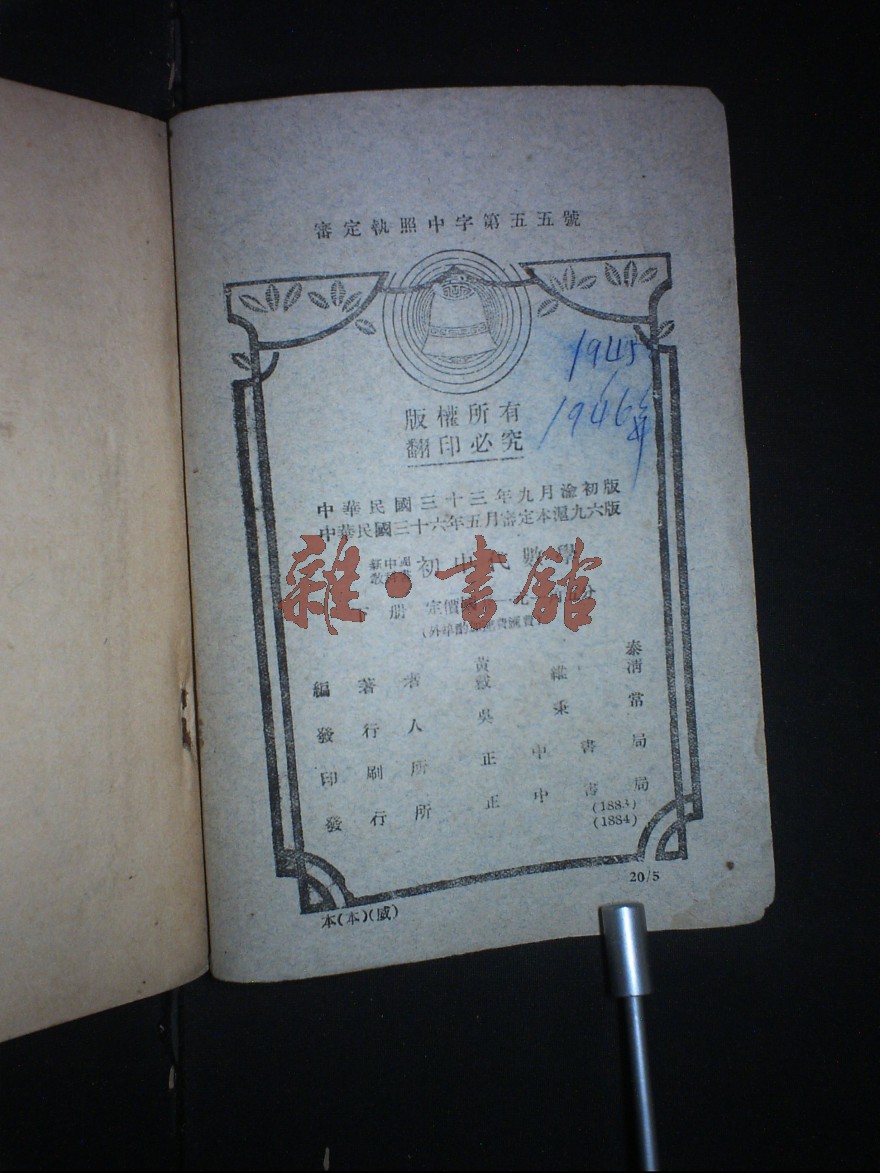 審定執照中字第五五號
1945
1946年
版權所有
翻印必究
中華民國三十三年九月渝初版
中華民國三十六年五月審定本滬九六版
新中國
教科書
初中代數學
雜·書館
下冊 定價國
編著者 黃泰
發行人 吳秉常
印刷所 正中書局
發行所 正中書局
(1883)
(1884)
20/5
本(本)(威)